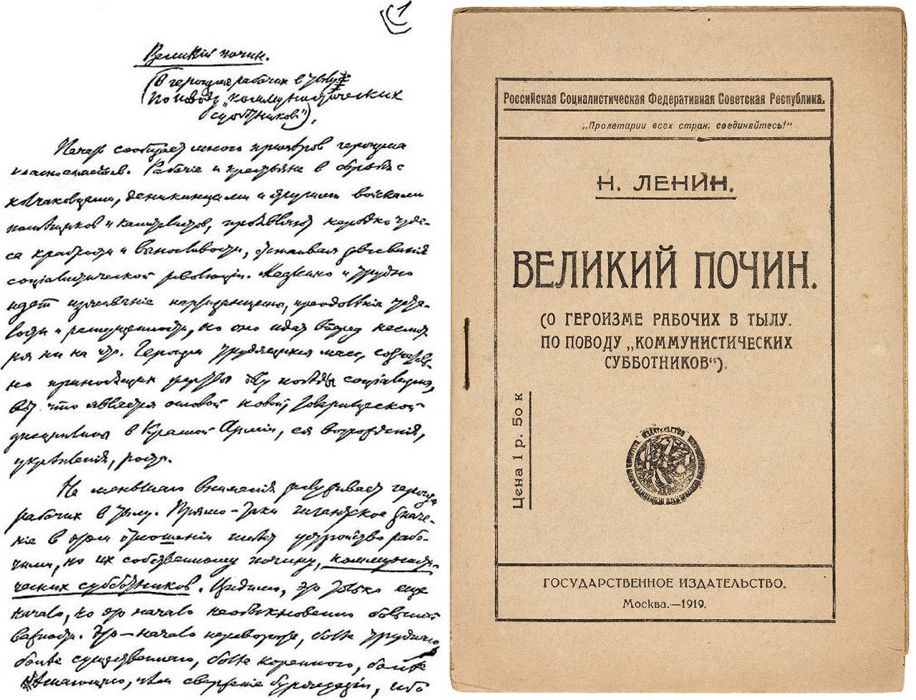 1
Великий почин.
(О героизме рабочих в тылу.
По поводу „коммунистических
субботников“).
Печать сообщает много примеров героизма
красноармейцев. Рабочие и крестьяне в борьбе с
колчаковцами, деникинцами и другими войсками
помещиков и капиталистов, проявляют нередко чуде-
са храбрости и выносливости, отстаивая завоевания
социалистической революции. Медленно и трудно
идет изживание партизанщины, преодоление уста-
лости и распущенности, но оно идет вперед несмот-
ря ни на что. Героизм трудящихся масс, сознатель-
но приносящих жертвы делу победы социализма,
вот что является основой новой, товарищеской
дисциплины в Красной Армии, ея возрождения,
укрепления, роста.
Не меньшего внимания заслуживает героизм
рабочих в тылу. Прямо-таки гигантское значе-
ние в этом отношении имеет устройство рабо-
чими, по их собственному почину, коммунисти-
ческих субботников. Видимо, это только еще
начало, но это начало необыкновенно большой
важности. Это — начало переворота, более трудного,
более существенного, более коренного, более
решающего, чем свержение буржуазии, ибо
Российская Социалистическая Федеративная Советская Республика.
„Пролетарии всех стран, соединяйтесь!“
Н. ЛЕНИН.
ВЕЛИКИЙ ПОЧИН.
(О ГЕРОИЗМЕ РАБОЧИХ В ТЫЛУ.
ПО ПОВОДУ „КОММУНИСТИЧЕСКИХ
СУББОТНИКОВ“).
Цена 1 р. 50 к
ГОСУДАРСТВЕННОЕ ИЗДАТЕЛЬСТВО.
Москва.—1919.